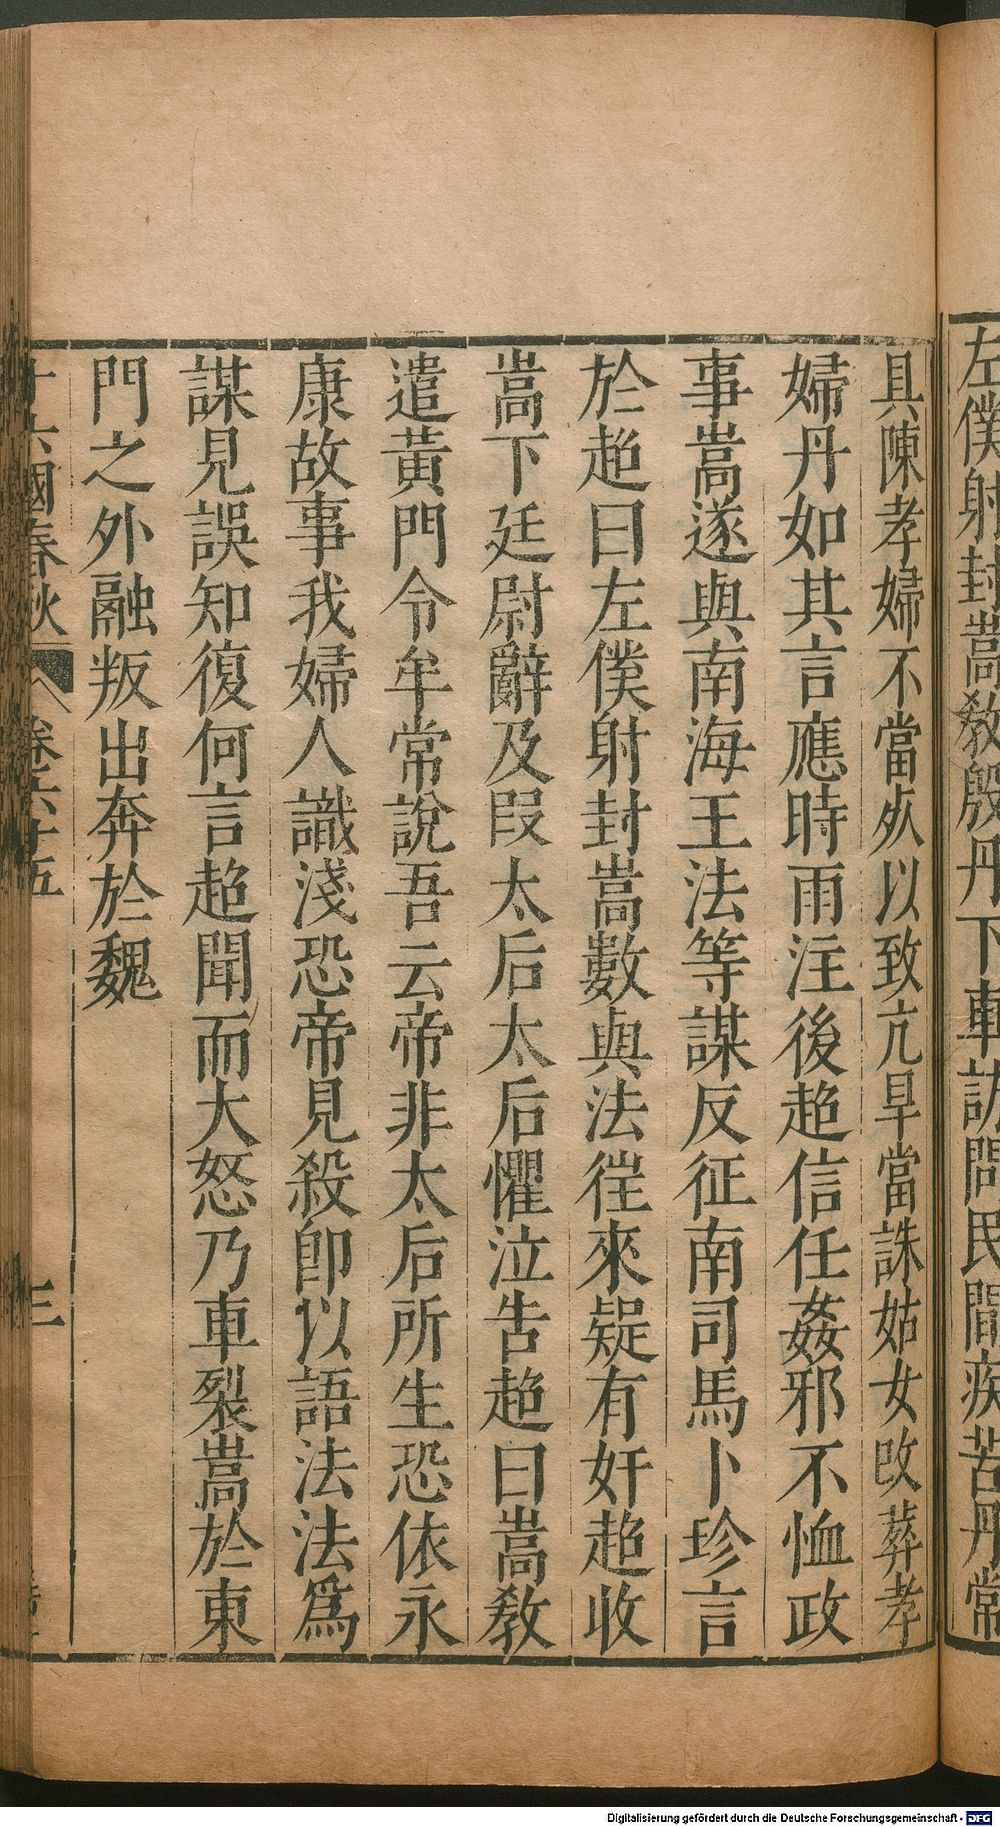 左僕射封嵩教殷丹下車訪問民間疾苦丹常
具陳孝婦不當死以致亢旱當誅姑女改葬孝
婦丹如其言應時雨注後超信任姦邪不恤政
事嵩遂與南海王法等謀反征南司馬卜珍言
於超曰左僕射封嵩數與法徃來疑有奸超收
嵩下廷尉辭及叚太后太后懼泣告超曰嵩教
遣黃門令牟常說吾云帝非太后所生恐依永
康故事我婦人識淺恐帝見殺即以語法法爲
謀見誤知復何言超聞而大怒乃車裂嵩於東
門之外融叛出奔於魏
十六國春秋 卷六十五 三
Digitalisierung gefördert durch die Deutsche Forschungsgemeinschaft - DFG